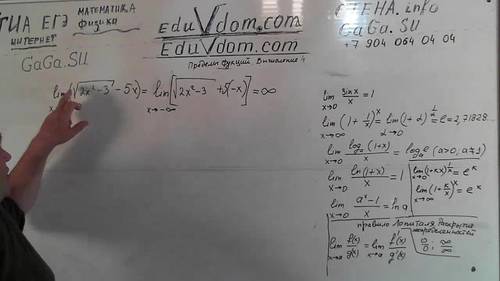 ГИА ЕГЭ МАТЕМАТИКА
физика
ИНТЕРНЕТ
GaGa.SU
EduVdom.com
EduVdom.com
Пределы функций Вычисление 4
СТЕНА.info
GaGa.SU
+7 904 064 04 04
lim (√2x²-3 - 5x) = lim [√2x²-3 + 5(-x)] = ∞
x→-∞
lim sinx/x = 1
x→0
lim (1+1/x)^x = lim (1+α)^(1/α) = e = 2,71828...
x→∞ α→0
lim log_a(1+x)/x = log_a e (a>0, a≠1)
x→0
lim ln(1+x)/x = 1
x→0
lim (1+kx)^(1/x) = e^k
x→0
lim (1+k/x)^x = e^k
x→∞
lim (a^x-1)/x = ln a
x→0
правило Лопиталя, Раскрытие
неопределенностей
lim f(x)/g(x) = lim f'(x)/g'(x) 0/0; ∞/∞
x→a x→a